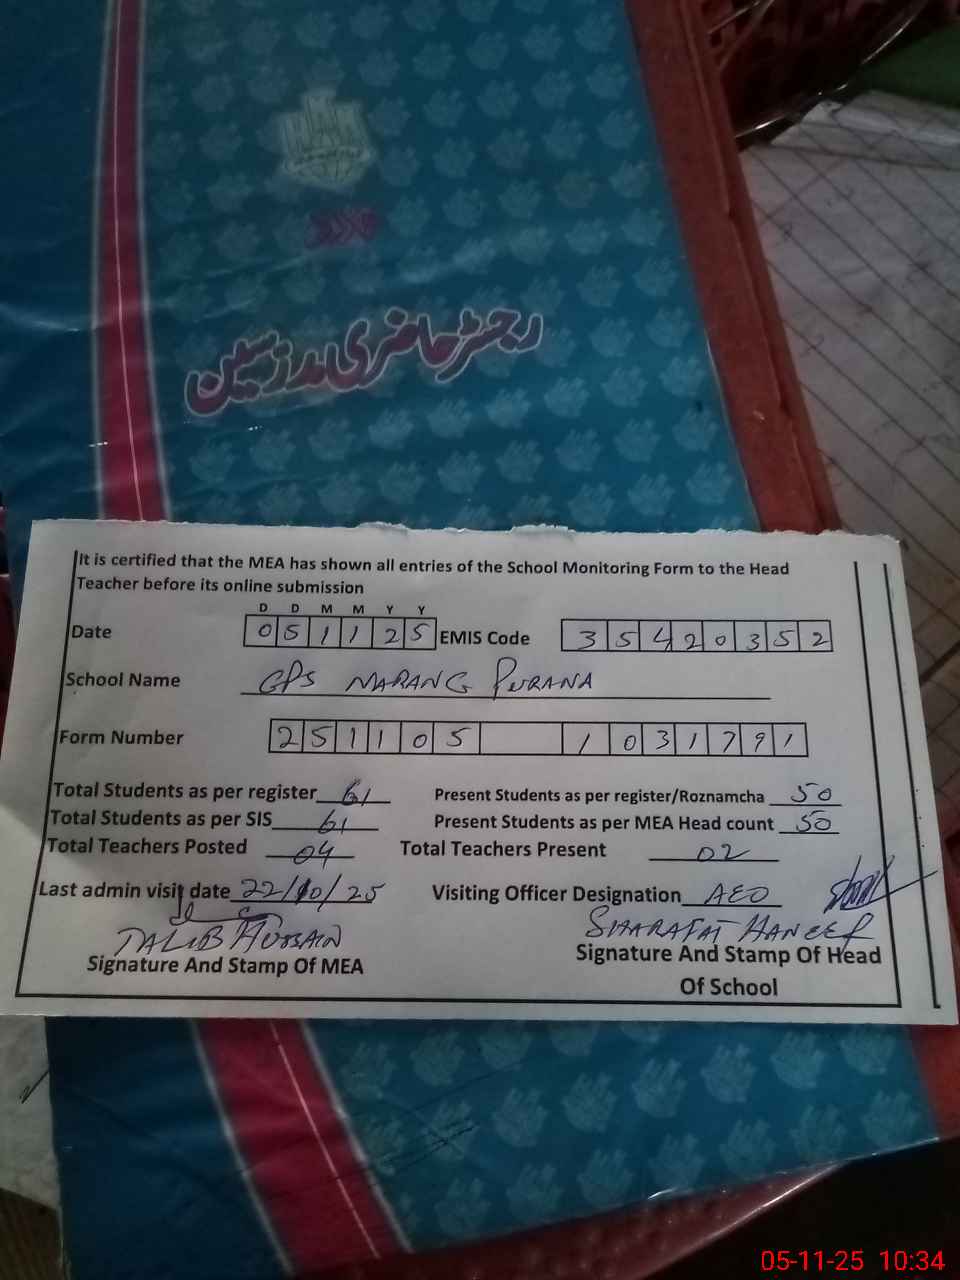 رجسٹر حاضری مدرسین
It is certified that the MEA has shown all entries of the School Monitoring Form to the Head
Teacher before its online submission
D D M M Y Y
Date 0 5 1 1 2 5 EMIS Code 3 5 4 2 0 3 5 2
School Name GPS NARANG PURANA
Form Number 2 5 1 1 0 5 1 0 3 1 7 9 1
Total Students as per register 61 Present Students as per register/Roznamcha 50
Total Students as per SIS 61 Present Students as per MEA Head count 50
Total Teachers Posted 04 Total Teachers Present 02
Last admin visit date 22/10/25 Visiting Officer Designation AEO
TALIB HUSSAIN SHARAFAT HANEEF
Signature And Stamp Of MEA Signature And Stamp Of Head
Of School
05-11-25 10:34